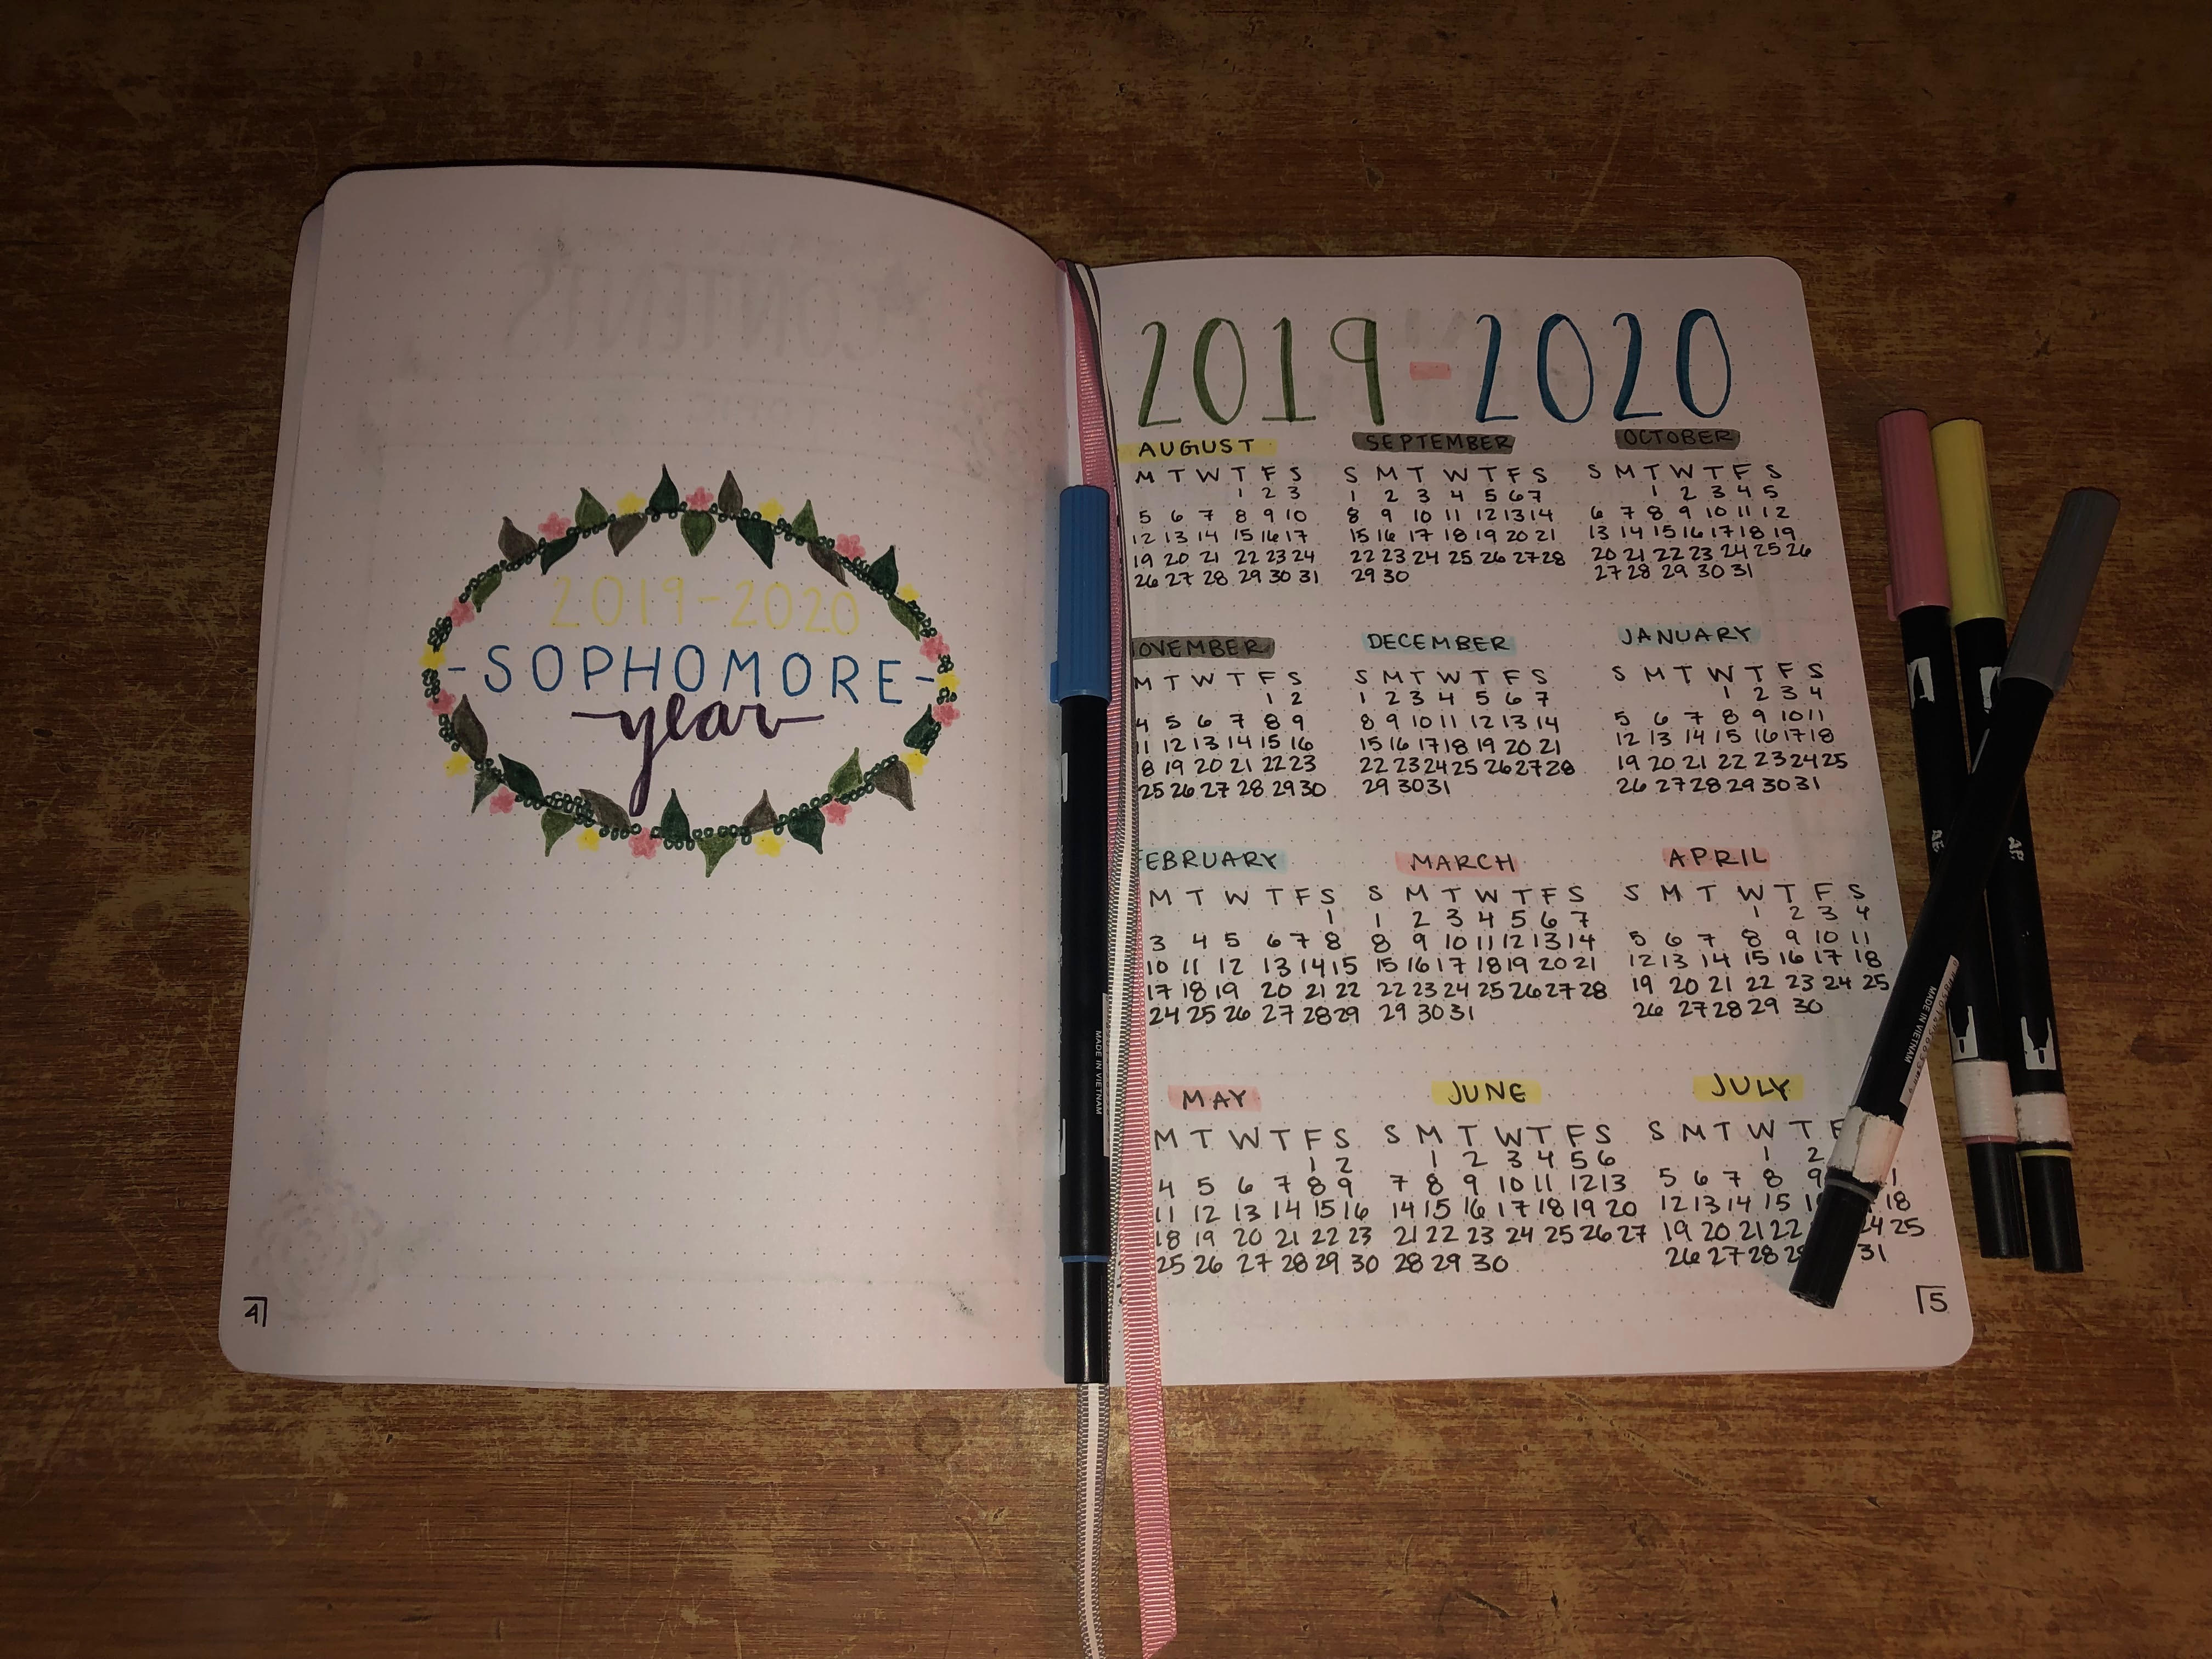 2019-2020
-SOPHOMORE-
year
4
2019-2020
AUGUST SEPTEMBER OCTOBER
M T W T F S S M T W T F S S M T W T F S
1 2 3 1 2 3 4 5 6 7 1 2 3 4 5
5 6 7 8 9 10 8 9 10 11 12 13 14 6 7 8 9 10 11 12
12 13 14 15 16 17 15 16 17 18 19 20 21 13 14 15 16 17 18 19
19 20 21 22 23 24 22 23 24 25 26 27 28 20 21 22 23 24 25 26
26 27 28 29 30 31 29 30 27 28 29 30 31
OVEMBER DECEMBER JANUARY
M T W T F S S M T W T F S S M T W T F S
1 2 1 2 3 4 5 6 7 1 2 3 4
4 5 6 7 8 9 8 9 10 11 12 13 14 5 6 7 8 9 10 11
11 12 13 14 15 16 15 16 17 18 19 20 21 12 13 14 15 16 17 18
8 19 20 21 22 23 22 23 24 25 26 27 28 19 20 21 22 23 24 25
25 26 27 28 29 30 29 30 31 26 27 28 29 30 31
EBRUARY MARCH APRIL
M T W T F S S M T W T F S S M T W T F S
1 1 2 3 4 5 6 7 1 2 3 4
3 4 5 6 7 8 8 9 10 11 12 13 14 5 6 7 8 9 10 11
10 11 12 13 14 15 15 16 17 18 19 20 21 12 13 14 15 16 17 18
17 18 19 20 21 22 22 23 24 25 26 27 28 19 20 21 22 23 24 25
24 25 26 27 28 29 29 30 31 26 27 28 29 30
MAY JUNE JULY
M T W T F S S M T W T F S S M T W T F
1 2 1 2 3 4 5 6 1 2
4 5 6 7 8 9 7 8 9 10 11 12 13 5 6 7 8 9 1
11 12 13 14 15 16 14 15 16 17 18 19 20 12 13 14 15 18
18 19 20 21 22 23 21 22 23 24 25 26 27 19 20 21 22 24 25
25 26 27 28 29 30 28 29 30 26 27 28 29 31
5
MADE IN VIETNAM
MADE IN VIETNAM